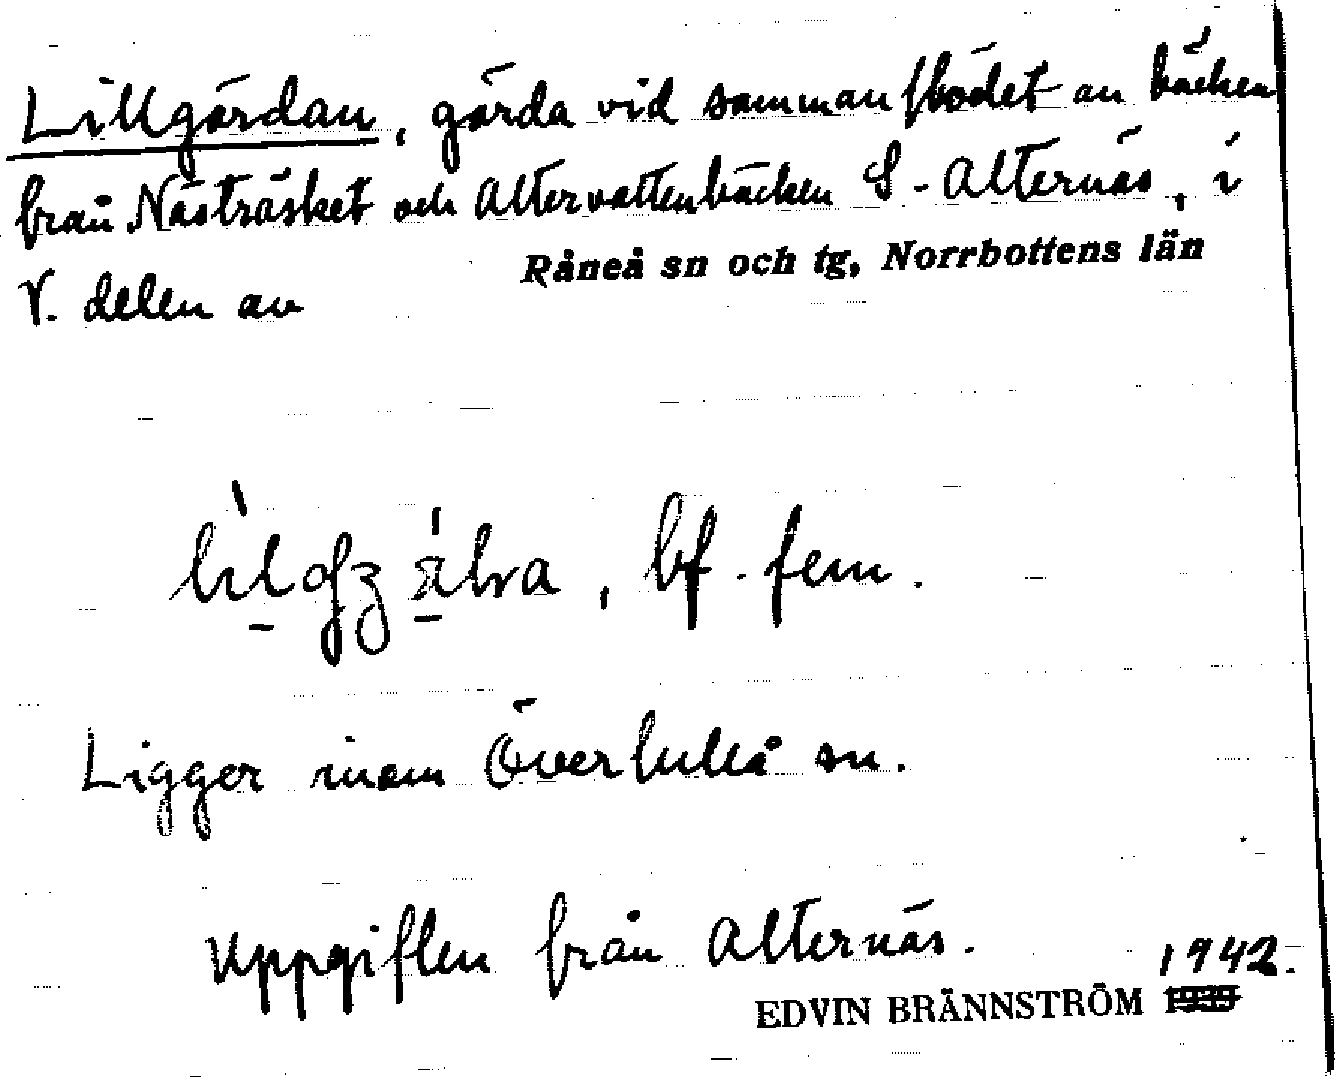 Lillgärdan, gärda vid sammanflödet av bäcken
från Nästräsket och Altervattenbäcken S. Alternäs, i
V. delen av Råneå sn och tg, Norrbottens län
bf. fem.
Ligger inom Överluleå sn.
Uppgiften från Alternäs.
1942.
EDVIN BRÄNNSTRÖM